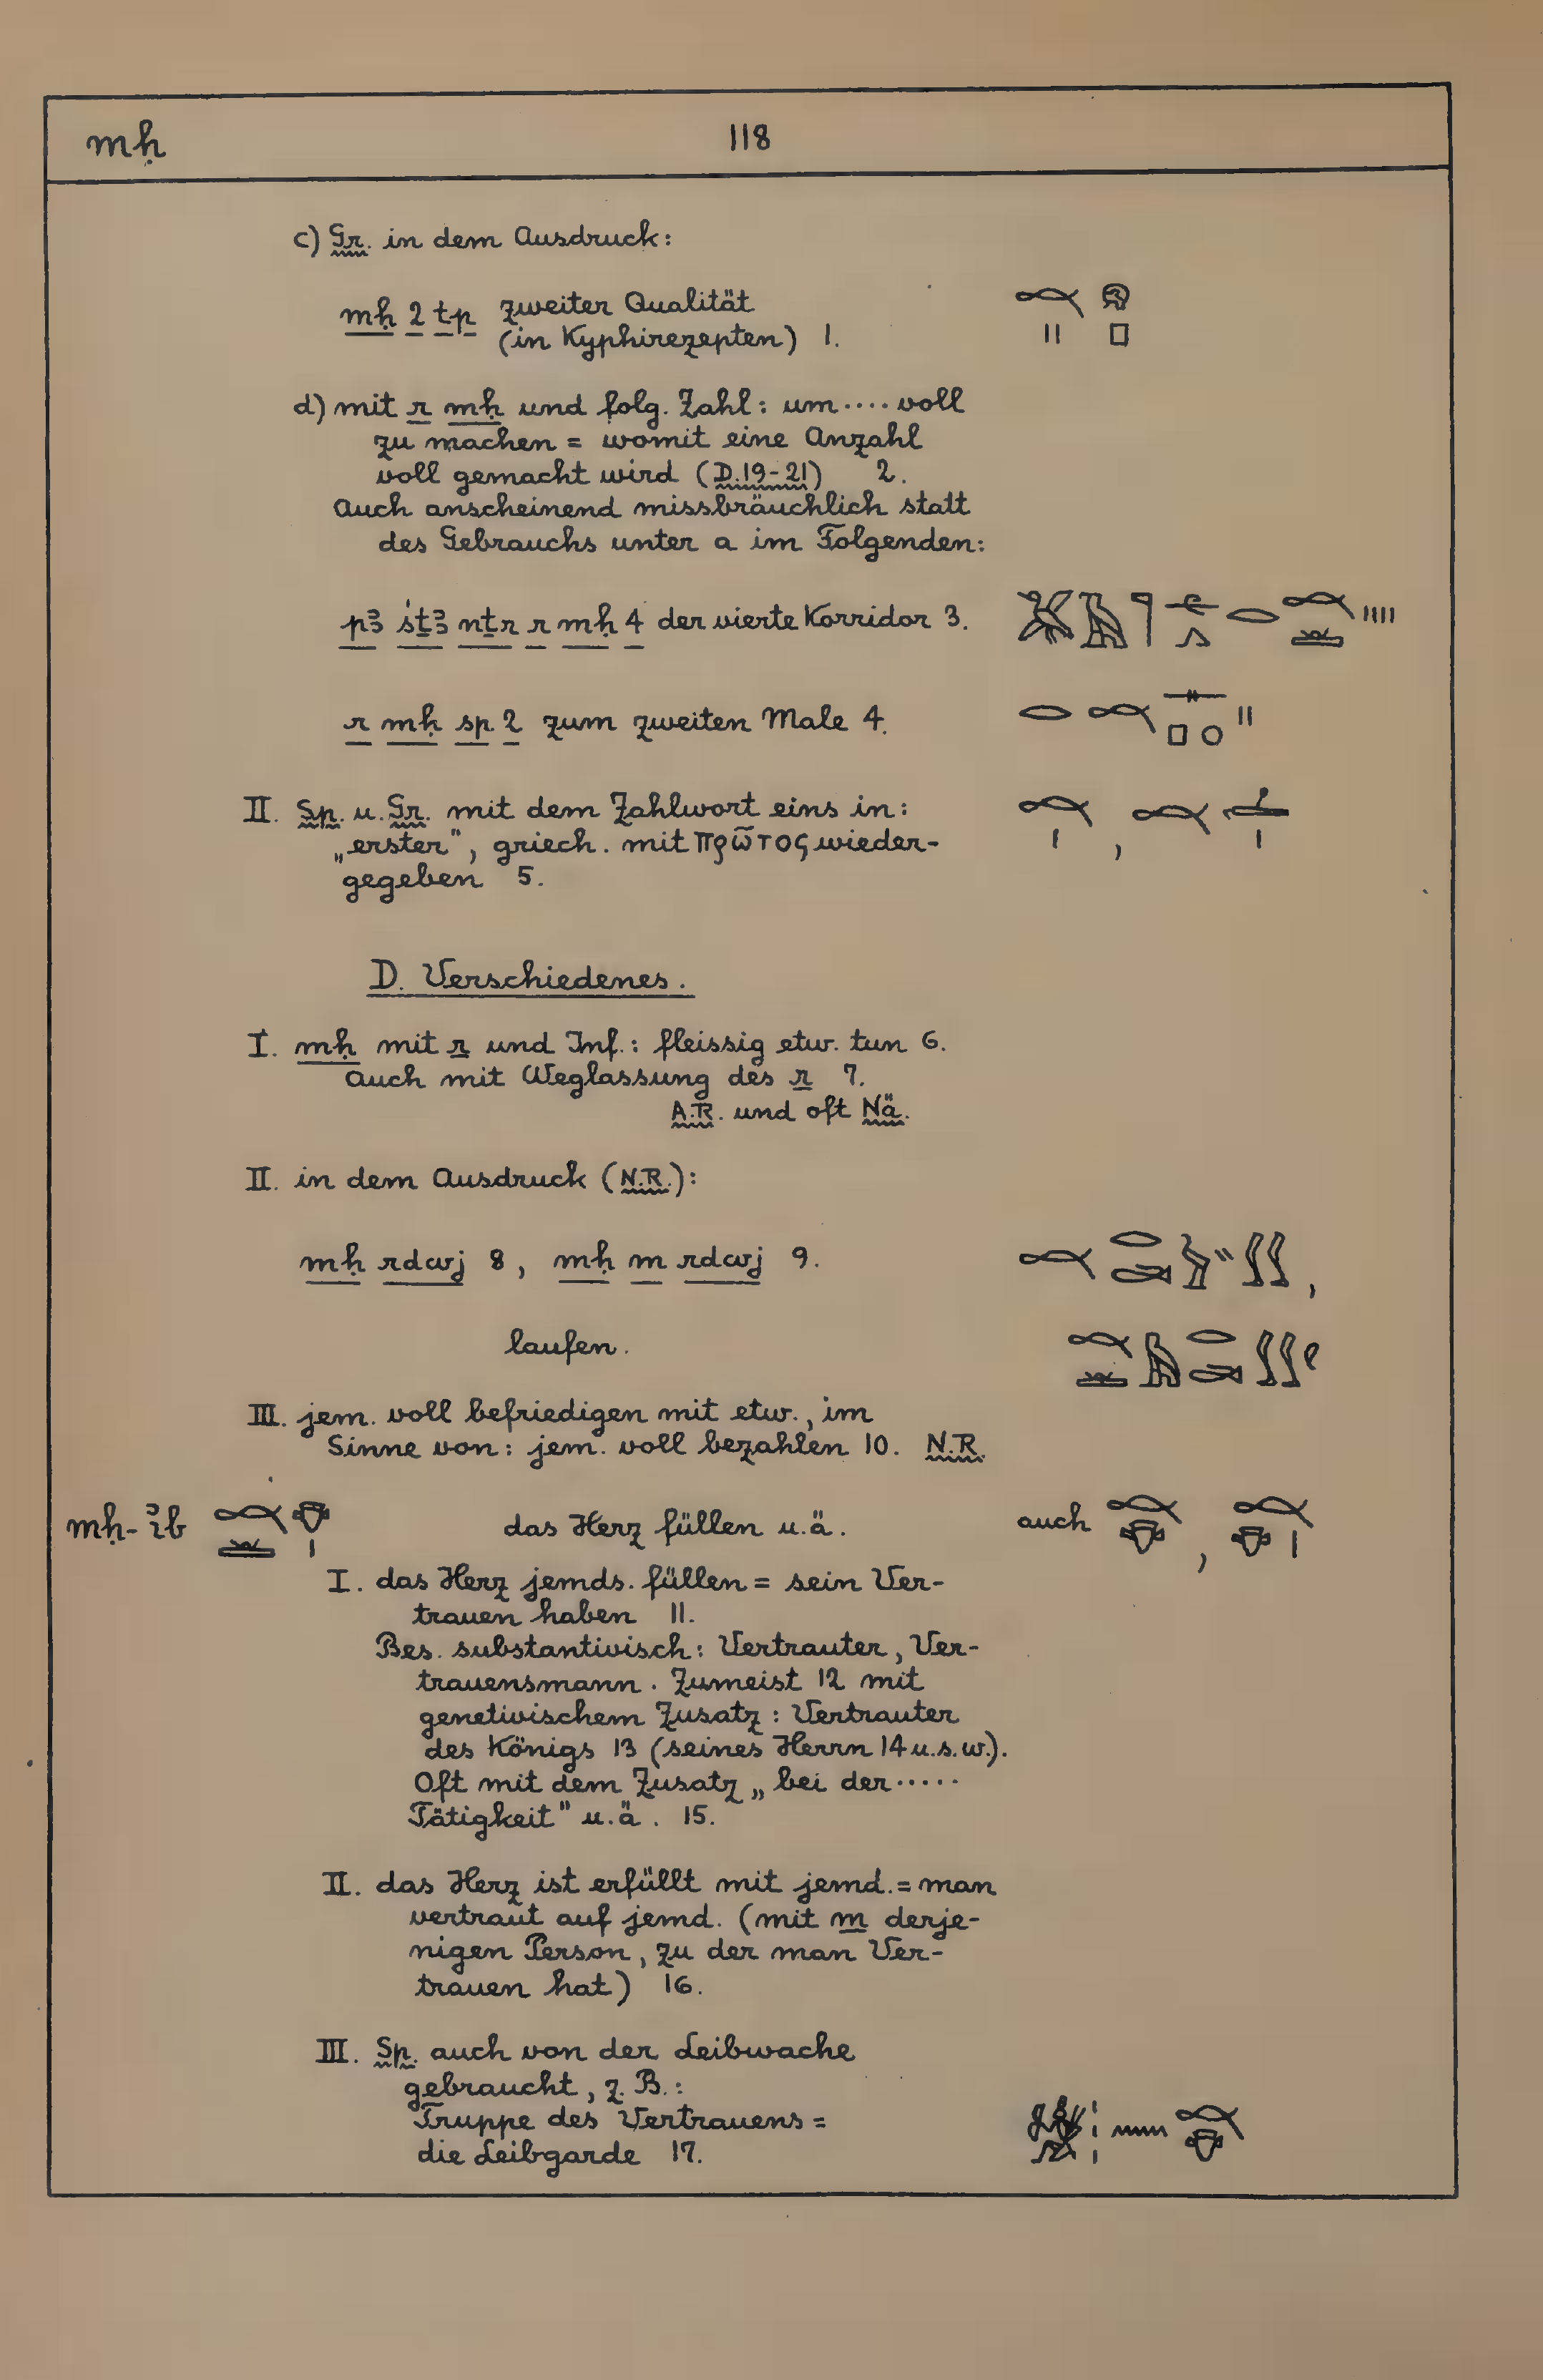 mḥ 118
c) Gr. in dem Ausdruck:
mḥ 2 tp zweiter Qualität
(in Kyphirezepten) 1.
d) mit r mḥ und folg. Zahl: um .... voll
zu machen = womit eine Anzahl
voll gemacht wird (D.19-21) 2.
Auch anscheinend missbräuchlich statt
des Gebrauchs unter a im Folgenden:
pꜣ śṯꜣ nṯr r mḥ 4 der vierte Korridor 3.
r mḥ sp 2 zum zweiten Male 4.
II. Sp. u. Gr. mit dem Zahlwort eins in:
„erster", griech. mit πρῶτος wieder-
gegeben 5.
D. Verschiedenes.
I. mḥ mit r und Inf.: fleissig etw. tun 6.
Auch mit Weglassung des r 7.
A.R. und oft Nä.
II. in dem Ausdruck (N.R.):
mḥ rdwj 8, mḥ m rdwj 9.
laufen.
III. jem. voll befriedigen mit etw., im
Sinne von: jem. voll bezahlen 10. N.R.
mḥ-ı͗b das Herz füllen u.ä. auch
I. das Herz jemds. füllen = sein Ver-
trauen haben 11.
Bes. substantivisch: Vertrauter, Ver-
trauensmann. Zumeist 12 mit
genetivischem Zusatz: Vertrauter
des Königs 13 (seines Herrn 14 u.s.w.).
Oft mit dem Zusatz „bei der .....
Tätigkeit" u.ä. 15.
II. das Herz ist erfüllt mit jemd. = man
vertraut auf jemd. (mit m derje-
nigen Person, zu der man Ver-
trauen hat) 16.
III. Sp. auch von der Leibwache
gebraucht, z.B.:
Truppe des Vertrauens =
die Leibgarde 17.